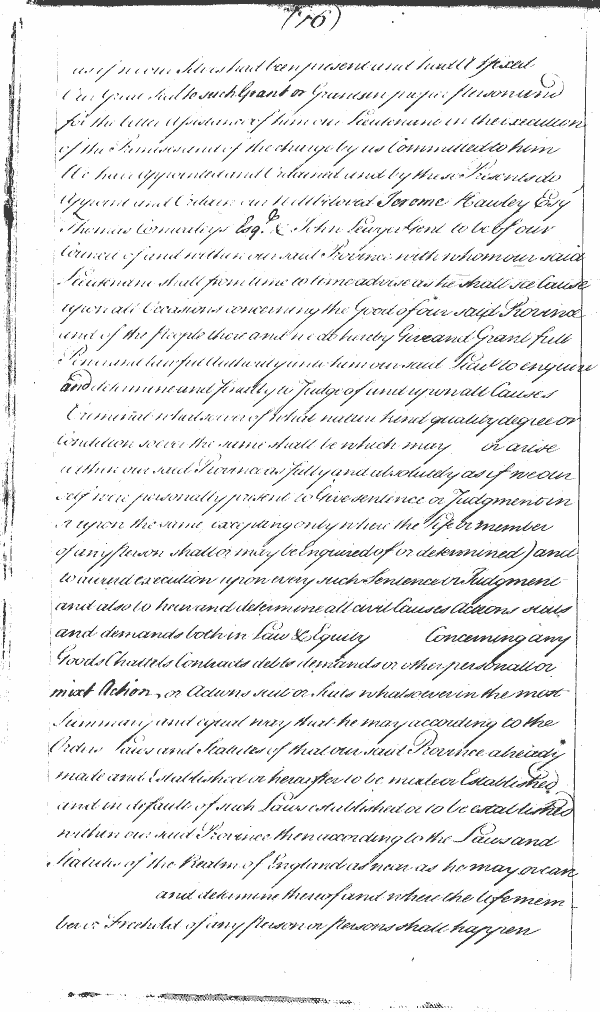 (76)
as if we our selves had been present and had Affixed
Our Great Seal to such Grant or Grants in proper person and
for the better Assistance of him our Lieutenant in the execution
of the Premises and of the charge by us Committed to him
We have Appointed and Ordained and by these Presents do
Appoint and Ordain our Wellbeloved Jerome Hawley Esqr
Thomas Cornwaleys Esqr. & John Lewger Gent to be of our
Council of and within our said Province with whom our said
Lieutenant shall from time to time advise as he shall see Cause
upon all Occasions concerning the Good of our said Province
and of the people there and we do hereby Give and Grant full
Power and lawful Authority unto him our said Lieut to enquire
and determine and finally to Judge of and upon all Causes
Criminal whatsoever of what nature kind quality degree or
Condition soever the same shall be which may or arise
within our said Province as fully and absolutely as if we our
self were personally present to Give sentence or Judgment in
or upon the same excepting only where the Life or member
of any Person shall or may be Enquired of or determined) and
to award execution upon every such Sentence or Judgment
and also to hear and determine all civil Causes Actions suits
and demands both in Law & Equity Concerning any
Goods Chattels Contracts debts demands or other personall or
mixt Action, or Actions suit or Suits whatsoever in the most
Summary and equal way that he may according to the
Orders Laws and Statutes of that our said Province already
made and Established or hereafter to be made or Established
and in default of such Laws established or to be established
within our said Province then according to the Laws and
Statutes of the Realm of England as near as he may or can
and determine thereof and where the life mem
ber or Freehold of any Person or Persons shall happen